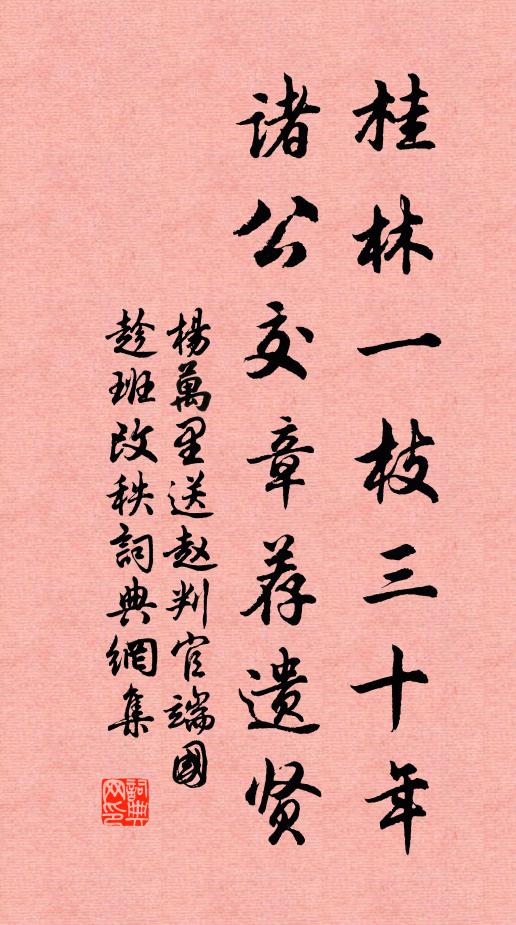 桂林一枝三十年
诸公交章荐遗贤
楊萬里送赵判官端國
趁班改秩詞典網集
詞典网印